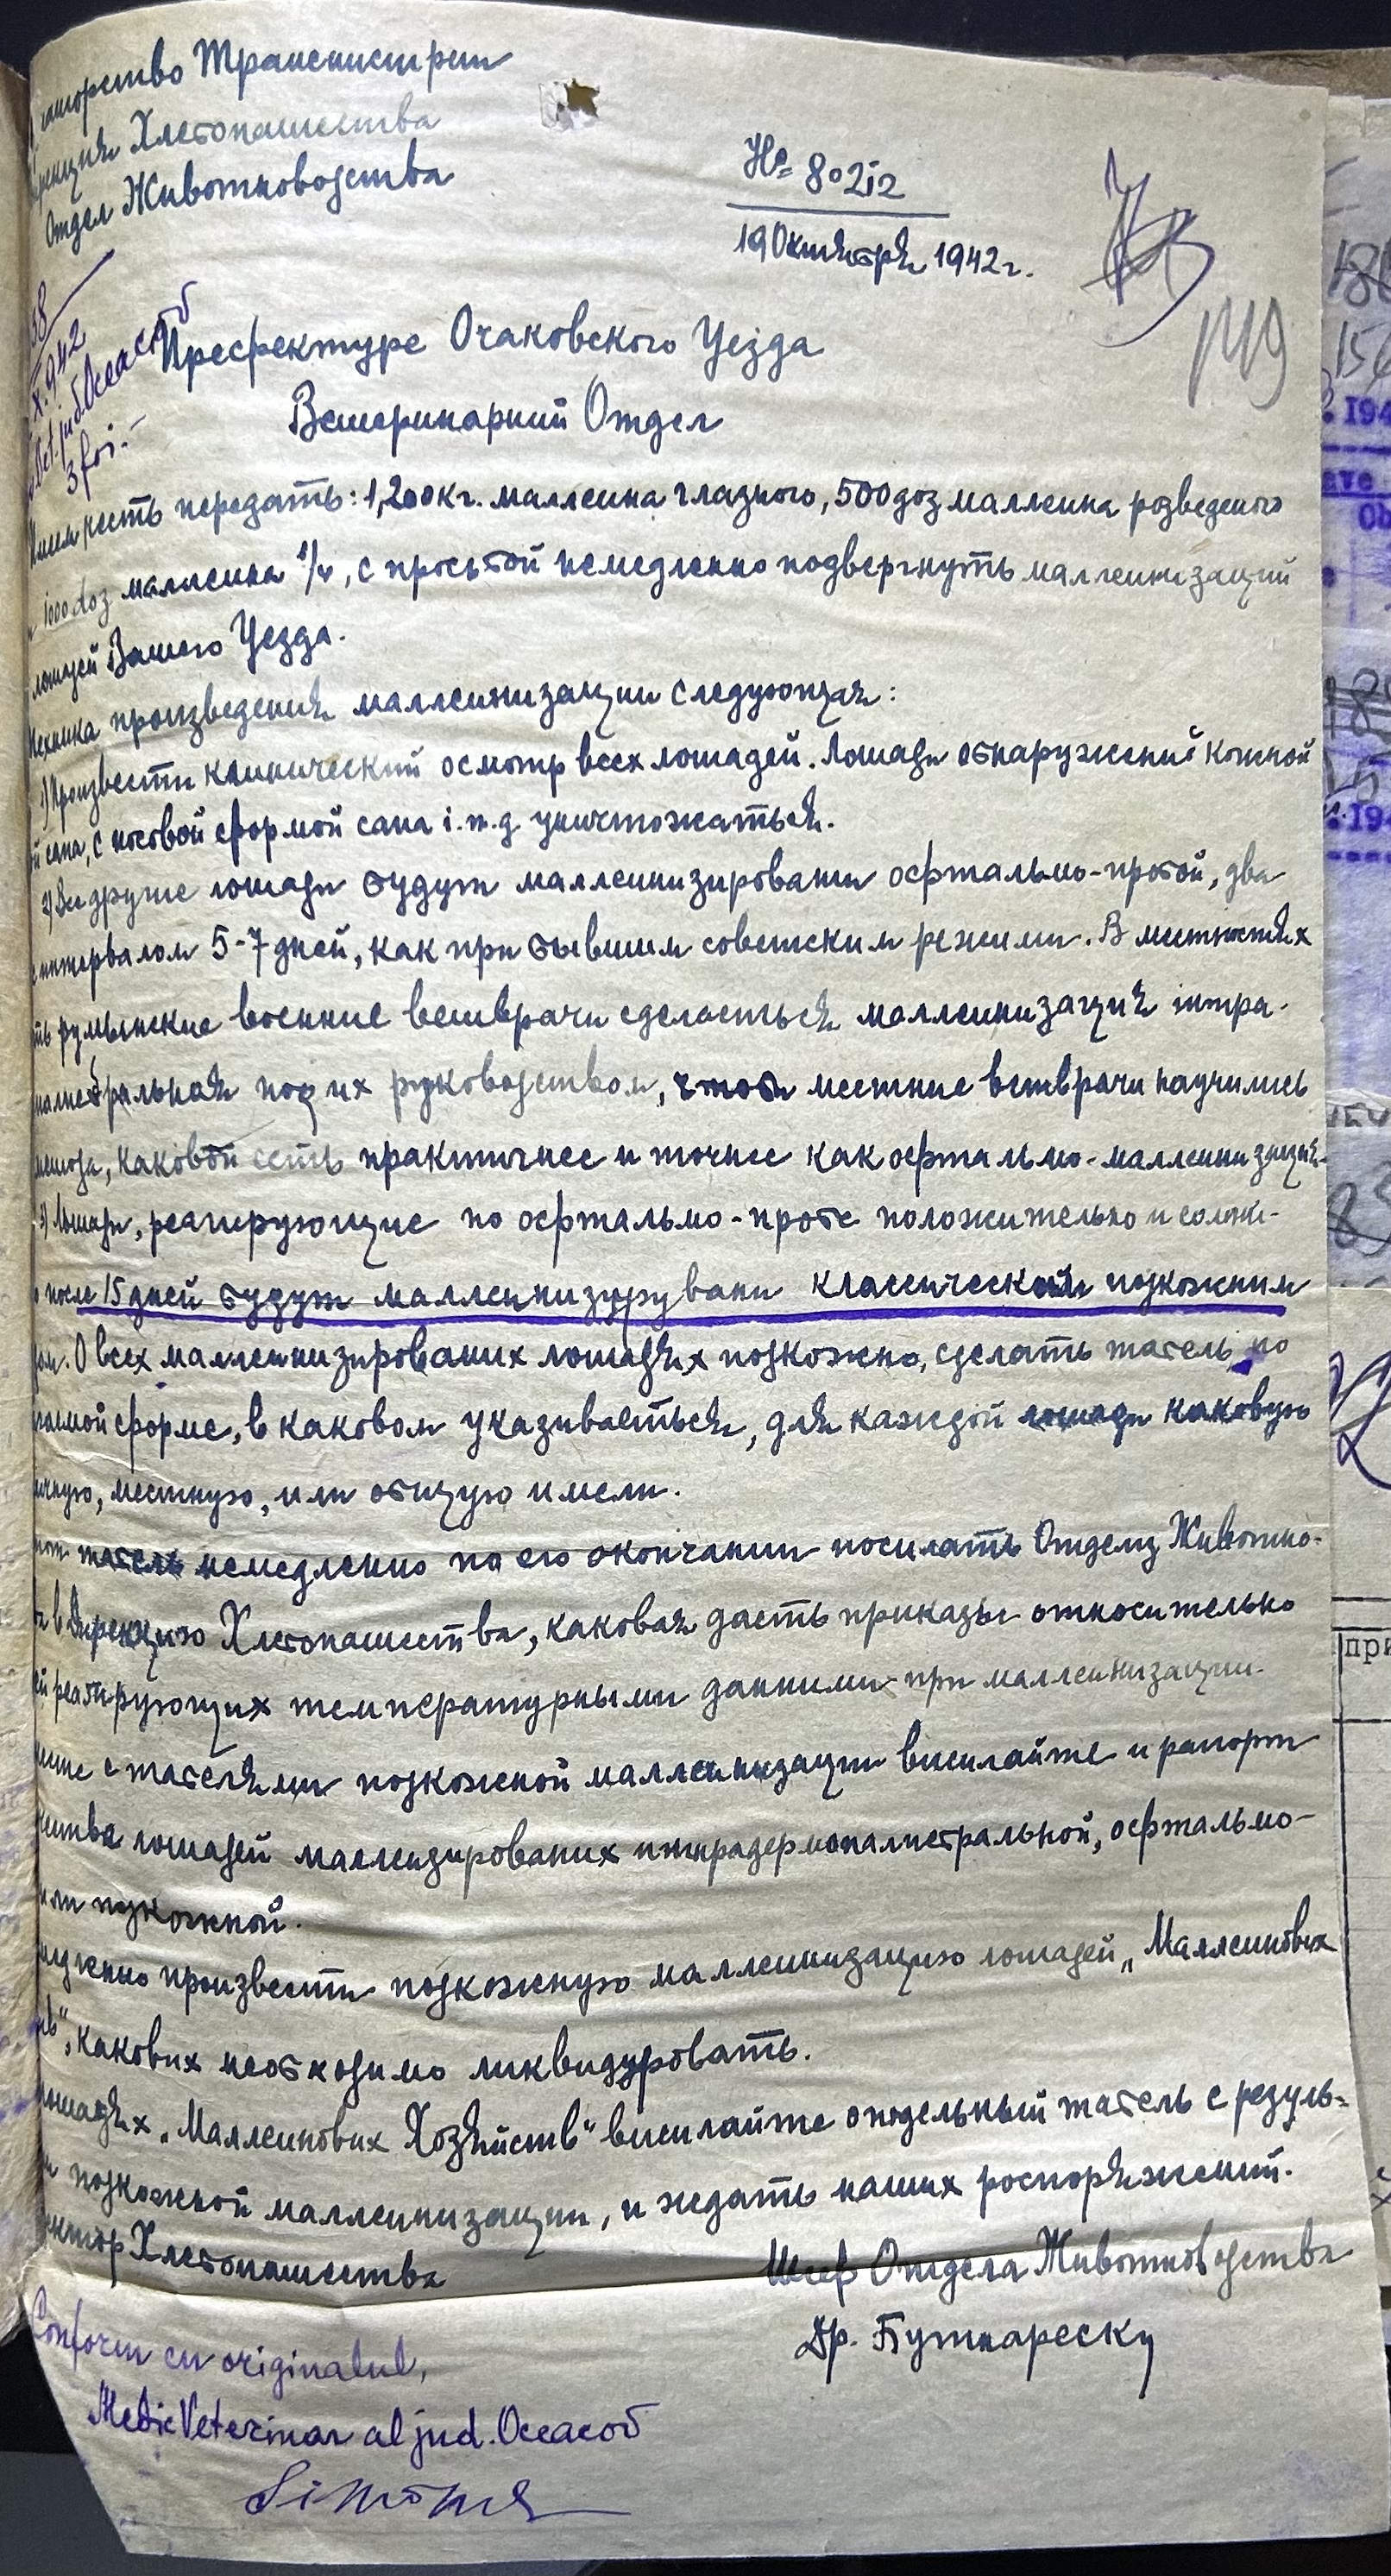 Транснистрии
Хлебопашества
Отдел Животноводства
№ 80212
19 Октября 1942 г.
149
X.942
3 foi.-
Префектуре Очаковского Уезда
Ветеринарний Отдел
честь передать: 1,200 кг. маллеина глазного, 500 доз маллеина розведеного
1000 doz маллеина 1/4, с просьбой немедленно подвергнуть маллеинизаций
лошадей Вашего Уезда.
Техника произведения маллеинизации следующая:
1) Произвести клинический осмотр всех лошадей. Лошади обнаружений кожной
сапа, с носовой формой сапа і.т.д. уничтожаться.
2) Все другие лошади будут маллеинизировани офтальмо-пробой, два
интервалом 5-7 дней, как при бывшим советским режими. В местностях
румынские военние ветврачи сделаеться маллеинизация інтра-
под их руководством, чтоби местние ветврачи научились
каковой есть практичнее и точнее как офтальмо-маллеинизация.
3) Лошади, реагирующие по офтальмо-пробе положительно и сомни-
после 15 дней будут маллеинизурувани классическим подкожним
О всех маллеинизированих лошадях подкожно, сделать табель по
форме, в каковом указиваеться, для каждой лошади каковую
местную, или общую имели.
табель немедленно по его окончании посилать Отделу Животно-
в Дирекцию Хлебопашества, каковая дасть приказы относительно
реагирующих температурными данними при маллеинизации.
с табелями подкожной маллеинизации висилайте и рапорт
лошадей маллеизированих интрадермопалпебральной, офтальмо-
или подкожной.
произвести подкожную маллеинизацию лошадей „Маллеинових
каких необходимо ликвидуровать.
лошадях „Маллеинових Хозяйств" висилайте отдельный табель с резуль-
подкожной маллеинизации, и ждать наших роспоряжений.
Хлебопашества
Шеф Отдела Животноводства
Др. Бутнареску
Conform cu originalul,
Medic Veterinar al jud. Oceacov